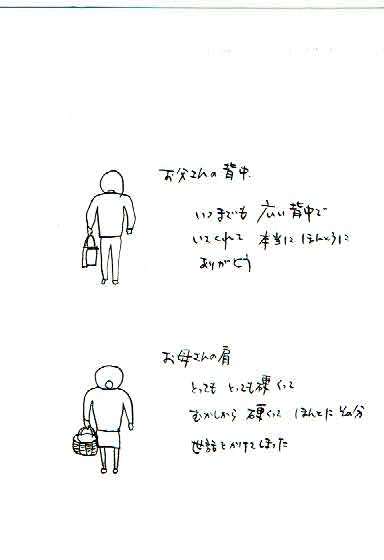 お父さんの背中
いつまでも 広い背中で
いてくれて 本当に ほんとうに
ありがとう
お母さんの肩
とっても とっても硬くって
むかしから 硬くって ほんとに その分
世話をかけてしまった